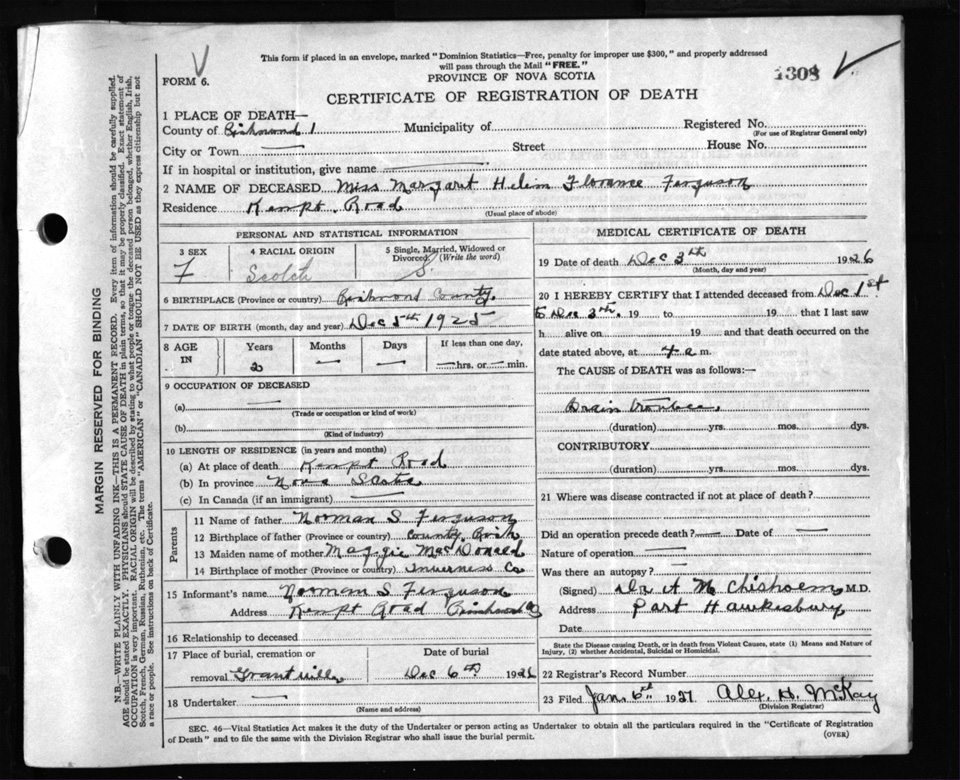 This form if placed in an envelope, marked "Dominion Statistics—Free, penalty for improper use $300," and properly addressed
will pass through the Mail "FREE."
FORM 6.
PROVINCE OF NOVA SCOTIA
1308
CERTIFICATE OF REGISTRATION OF DEATH
1 PLACE OF DEATH—
County of Richmond 1 Municipality of Registered No.
(For use of Registrar General only)
City or Town Street House No.
If in hospital or institution, give name
2 NAME OF DECEASED Miss Margaret Florance Ferguson
Residence Kempt Road
(Usual place of abode)
PERSONAL AND STATISTICAL INFORMATION
3 SEX 4 RACIAL ORIGIN 5 Single, Married, Widowed or Divorced (Write the word)
F Scotch S.
6 BIRTHPLACE (Province or country) Richmond County
7 DATE OF BIRTH (month, day and year) Dec 5th 1925
8 AGE IN Years Months Days If less than one day,
2 — — hrs. or min.
9 OCCUPATION OF DECEASED
(a)
(Trade or occupation or kind of work)
(b)
(Kind of industry)
10 LENGTH OF RESIDENCE (in years and months)
(a) At place of death Kempt Road
(b) In province Nova Scotia
(c) In Canada (if an immigrant)
Parents
11 Name of father Norman S. Ferguson
12 Birthplace of father (Province or country) County Rich
13 Maiden name of mother Maggie MacDonald
14 Birthplace of mother (Province or country) Inverness Co
15 Informant's name Norman S Ferguson
Address Kempt Road
16 Relationship to deceased
17 Place of burial, cremation or Date of burial
removal Grantville Dec 6th 1926
18 Undertaker
(Name and address)
MEDICAL CERTIFICATE OF DEATH
19 Date of death Dec 3th 1926
(Month, day and year)
20 I HEREBY CERTIFY that I attended deceased from Dec 1st
to Dec 3th. 19 to 19 that I last saw
h alive on 19 and that death occurred on
the date stated above, at 4 a m.
The CAUSE of DEATH was as follows:—
Brain trouble.
(duration) yrs. mos. dys.
CONTRIBUTORY
(duration) yrs. mos. dys.
21 Where was disease contracted if not at place of death?
Did an operation precede death? Date of
Nature of operation
Was there an autopsy?
(Signed) Dr A M Chisholm M.D.
Address Port Hawkesbury
Date
State the Disease causing Death, or in death from Violent Causes, state (1) Means and Nature of
Injury, (2) whether Accidental, Suicidal or Homicidal.
22 Registrar's Record Number
23 Filed Jan. 6th 1927 Alex. H. McKay
(Division Registrar)
SEC. 46—Vital Statistics Act makes it the duty of the Undertaker or person acting as Undertaker to obtain all the particulars required in the "Certificate of Registration
of Death" and to file the same with the Division Registrar who shall issue the burial permit.
(OVER)
MARGIN RESERVED FOR BINDING
N.B.—WRITE PLAINLY WITH UNFADING INK—THIS IS A PERMANENT RECORD. Every item of information should be carefully supplied.
AGE should be stated EXACTLY. PHYSICIANS should STATE CAUSE OF DEATH in plain terms, so that it may be properly classified. Exact statement of
OCCUPATION is very important. RACIAL ORIGIN will be described by stating to what people or tongue the deceased person belonged, whether English, Irish,
Scotch, French, German, Russian, Ruthenian, etc. The terms "AMERICAN" or "CANADIAN" SHOULD NOT BE USED as they express citizenship but not
a race or people. See instructions on back of Certificate.